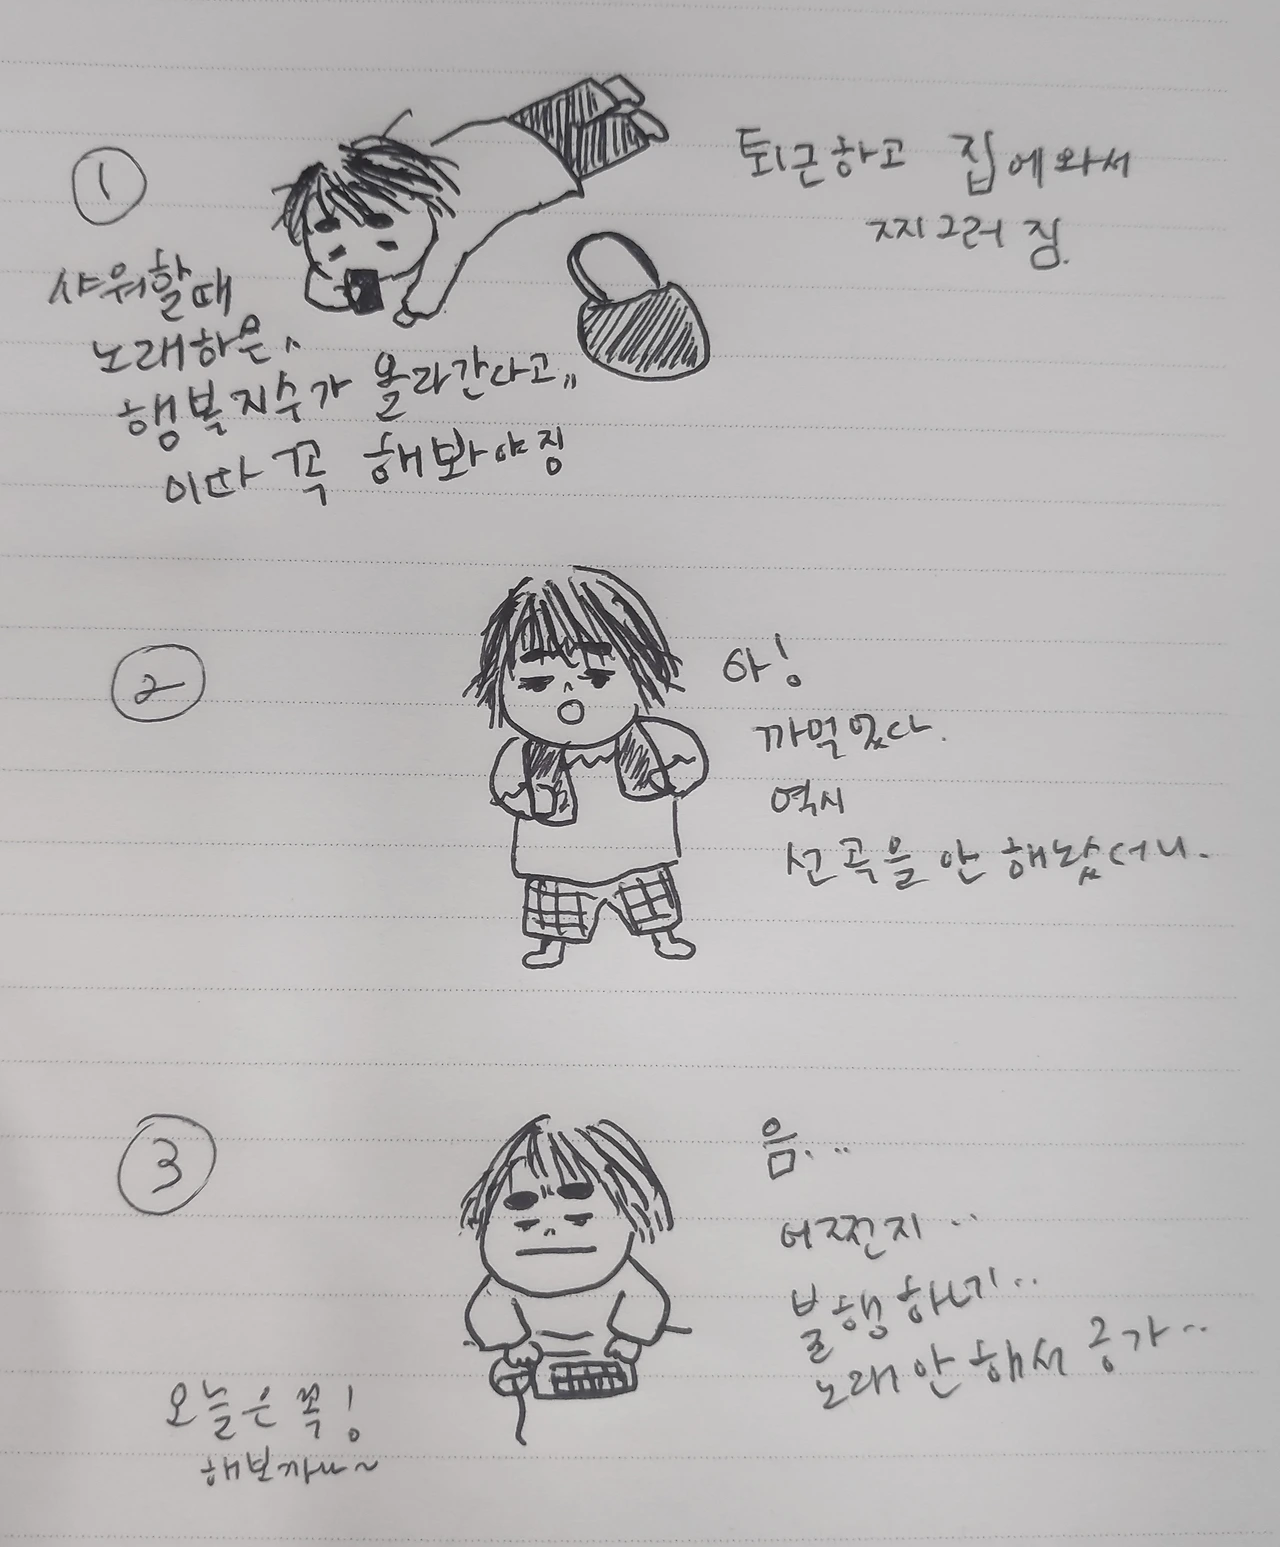 ①
퇴근하고 집에와서
찌그러짐.
샤워할때
노래하믄
행복지수가 올라간다고,,
이따 꼭 해봐야징
②
아!
까먹었다.
역시
선곡을 안 해놨더니.
③
음...
어쩐지..
불행하긔..
노래안해서 긍가..
오늘은 꼭!
해보까~~